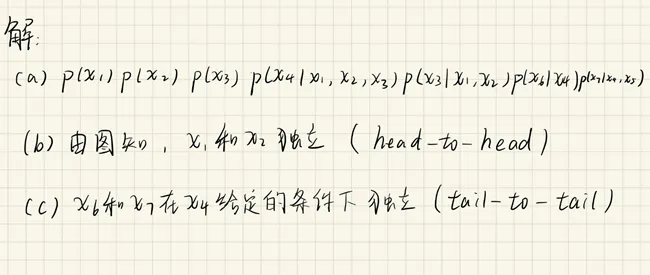 解:
(a) p(x₁) p(x₂) p(x₃) p(x₄|x₁, x₂, x₃) p(x₃|x₁, x₂) p(x₆|x₄) p(x₇|x₄, x₅)
(b) 由图知, x₁和x₂独立 (head-to-head)
(c) x₆和x₇在x₄给定的条件下独立 (tail-to-tail)